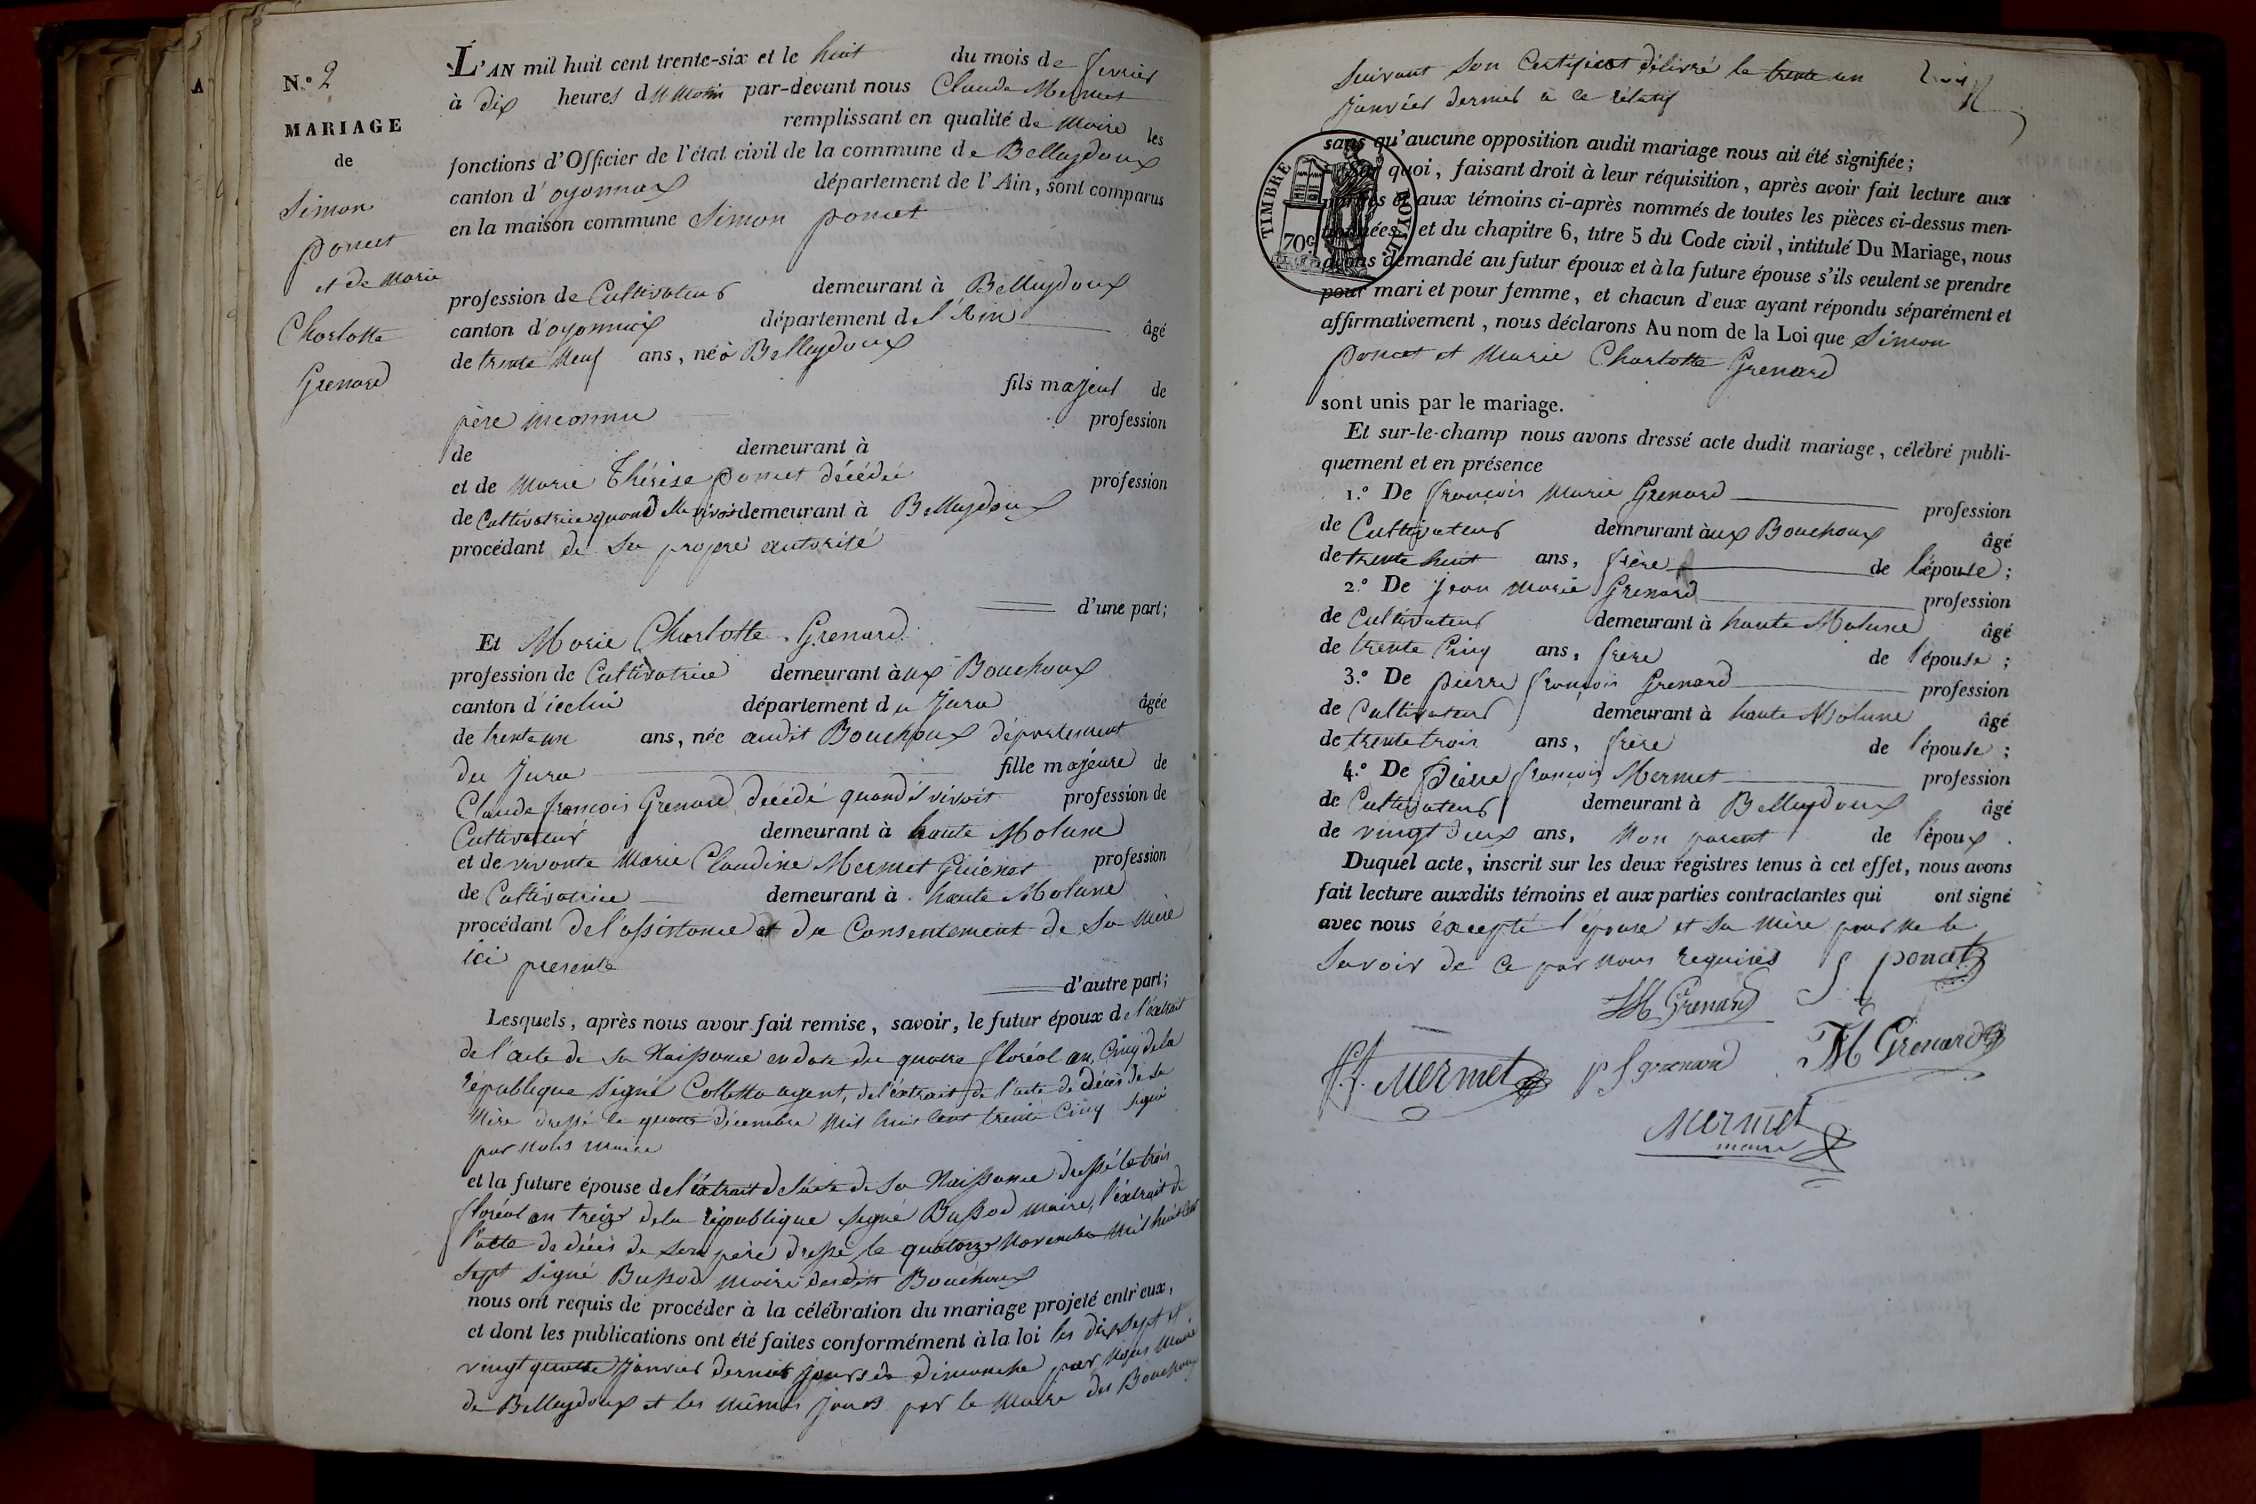 A
N.° 2
MARIAGE
de
Simon
poncet
et de Marie
Charlotte
Grenard
L'AN mil huit cent trente-six et le huit du mois de fevrier
à dix heures du Matin par-devant nous Claude Mermet
remplissant en qualité de Maire les
fonctions d'Officier de l'état civil de la commune de Belleydoux
canton d'oyonnax département de l'Ain, sont comparus
en la maison commune Simon poncet
profession de Cultivateur demeurant à Belleydoux
canton d'oyonnax département de l'Ain âgé
de trente Neuf ans, né à Belleydoux
fils majeur de
père inconnu profession
de demeurant à
et de Marie Thérèse poncet décédée profession
de Cultivatrice quand elle vivoit demeurant à Belleydoux
procédant de sa propre autorité
d'une part;
Et Marie Charlotte Grenard
profession de Cultivatrice demeurant aux Bouchoux
canton d'
département du Jura âgée
de trente un ans, née audit Bouchoux département
du Jura fille majeure de
Claude françois Grenard décédé quand il vivoit profession de
Cultivateur demeurant à haute Molune
et de vivante Marie Claudine Mermet Guienet profession
de Cultivatrice demeurant à haute Molune
procédant de l'assistance et du Consentement de sa mère
ici presente
d'autre part;
Lesquels, après nous avoir fait remise, savoir, le futur époux de l'extrait
de l'acte de sa Naissance en date du quatre floréal an Cinq de la
république signé Colletta agent, de l'extrait de l'acte de décès de sa
Mère dressé le quatre décembre Mil huit cent trente Cinq signé
par nous maire
et la future épouse de l'extrait de l'acte de sa Naissance dressé le trois
floréal an treize de la république signé Bussod maire, l'extrait de
l'acte de décès de son père dressé le quatorze Novembre Mil huit cent
sept signé Bussod Maire desdits Bouchoux
nous ont requis de procéder à la célébration du mariage projeté entr'eux,
et dont les publications ont été faites conformément à la loi les dix sept et
vingt quatre Janvier dernier jours de dimanche par Nous Maire
de Belleydoux et les mêmes jours par le Maire des Bouchoux
suivant son Certificat délivré le trente un
janvier dernier à ce rélatif
TIMBRE ROYAL
70 c
sans qu'aucune opposition audit mariage nous ait été signifiée;
Sur quoi, faisant droit à leur réquisition, après avoir fait lecture aux
parties et aux témoins ci-après nommés de toutes les pièces ci-dessus men-
tionnées, et du chapitre 6, titre 5 du Code civil, intitulé Du Mariage, nous
avons demandé au futur époux et à la future épouse s'ils veulent se prendre
pour mari et pour femme, et chacun d'eux ayant répondu séparément et
affirmativement, nous déclarons Au nom de la Loi que Simon
poncet et Marie Charlotte Grenard
sont unis par le mariage.
Et sur-le-champ nous avons dressé acte dudit mariage, célébré publi-
quement et en présence
1.° De françois Marie Grenard profession
de Cultivateur demeurant aux Bouchoux âgé
de trente huit ans, frère de l'épouse;
2.° De Jean Marie Grenard profession
de Cultivateur demeurant à haute Molune âgé
de trente Cinq ans, frère de l'épouse;
3.° De pierre françois Grenard profession
de Cultivateur demeurant à haute Molune âgé
de trente trois ans, frère de l'épouse;
4.° De Pierre françois Mermet profession
de Cultivateur demeurant à Belleydoux âgé
de vingt deux ans, Non parent de l'époux.
Duquel acte, inscrit sur les deux registres tenus à cet effet, nous avons
fait lecture auxdits témoins et aux parties contractantes qui ont signé
avec nous éxcepté l'épouse et sa Mère pour ne le
savoir de ce par nous requises S poncet
JM Grenard
P.f. Mermet p f grenard f M Grenard
Mermet
maire